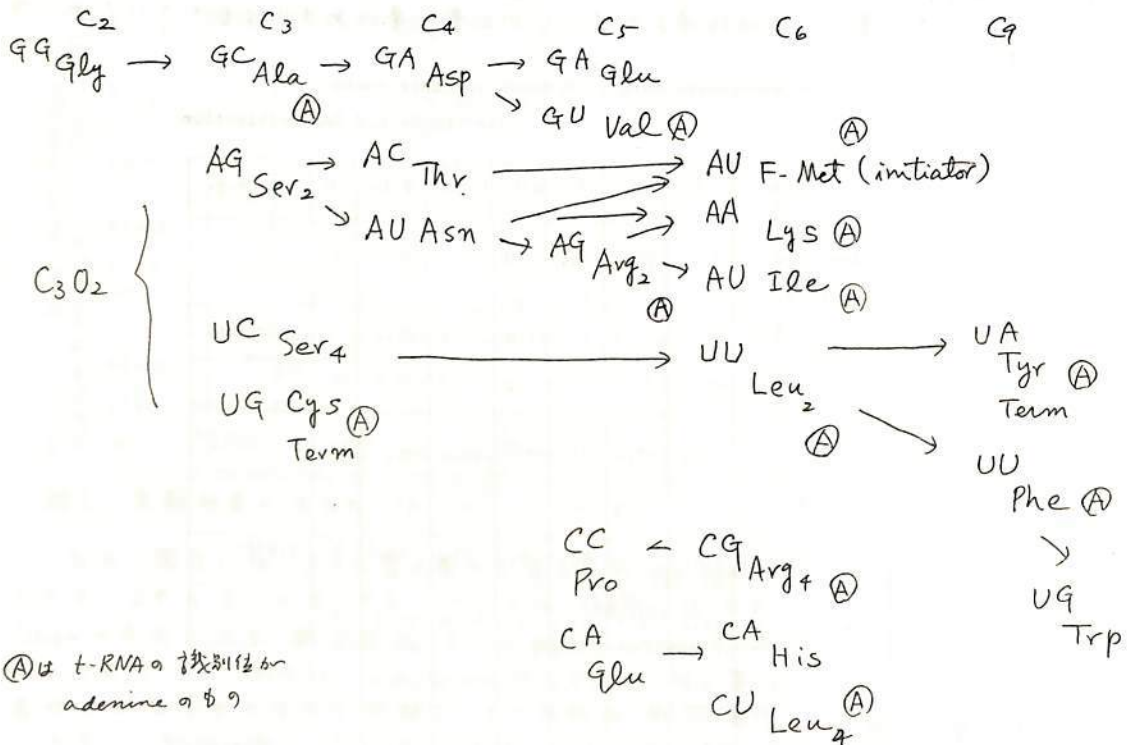 C2 C3 C4 C5 C6 C9
GG Gly → GC Ala Ⓐ → GA Asp → GA Glu
→ GU Val Ⓐ
AG Ser2 → AC Thr. → AU F-Met (initiator) Ⓐ
→ AU Asn → AG Arg2 Ⓐ → AA Lys Ⓐ
→ AU Ile Ⓐ
C3O2
UC Ser4 → UU Leu2 Ⓐ → UA Tyr Ⓐ
Term
UG Cys Ⓐ
Term
UU Phe Ⓐ
CC Pro ← CG Arg4 Ⓐ
UG Trp
CA Glu → CA His
CU Leu4 Ⓐ
Ⓐは t-RNAの識別位が
adenineのもの